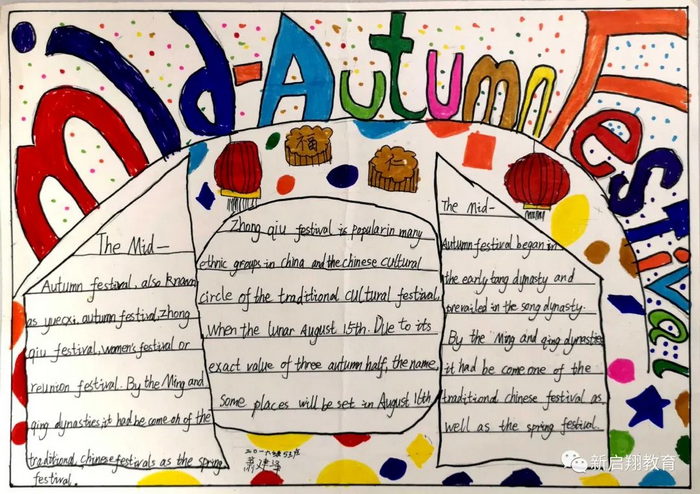 mid-Autumn Festival
福
仁
The Mid-
Autumn festival, also known
as yuexi, autumn festival, Zhong
qiu festival, women's festival or
reunion festival. By the Ming and
qing dynasties, it had be come oh of the
traditional chinese festivals as the spring
festival.
Zhong qiu festival is popular in many
ethnic groups in china and the chinese cultural
circle of the traditional cultural festival,
when the lunar August 15th. Due to its
exact value of three autumn half, the name,
some places will be set in August 16th
The Mid-
Autumn festival began in
the early tang dynasty and
prevailed in the song dynasty.
By the Ming and qing dynasties
it had be come one of the
traditional chinese festival as
well as the spring festival.
新启翔教育